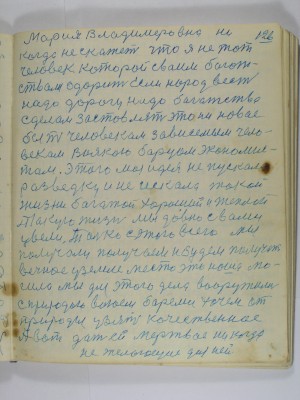 126
Мария Владимеровна ни
когда не скажет что я не тот
человек которой своим богат-
ством одорит Если народ всем
надо дорогу надо богатство
сделам застовлят это ни новае
быть человекам зависемым чело-
векам всякою барцом Экономис-
там. Этого моя идея не пускал
разведку и не искала такой
жизни богатой хорошей и теплой
Такую жизн мы довно с вами
увели, Только с этого всего мы
получали получаем и будем получат
вечное уземлё место это наша мо-
гила мы для этого дела вооружоли
с природою воюем баремся хочем от
природы узят качественное
А вот дат ей мертвае никогда
не желающие для ней